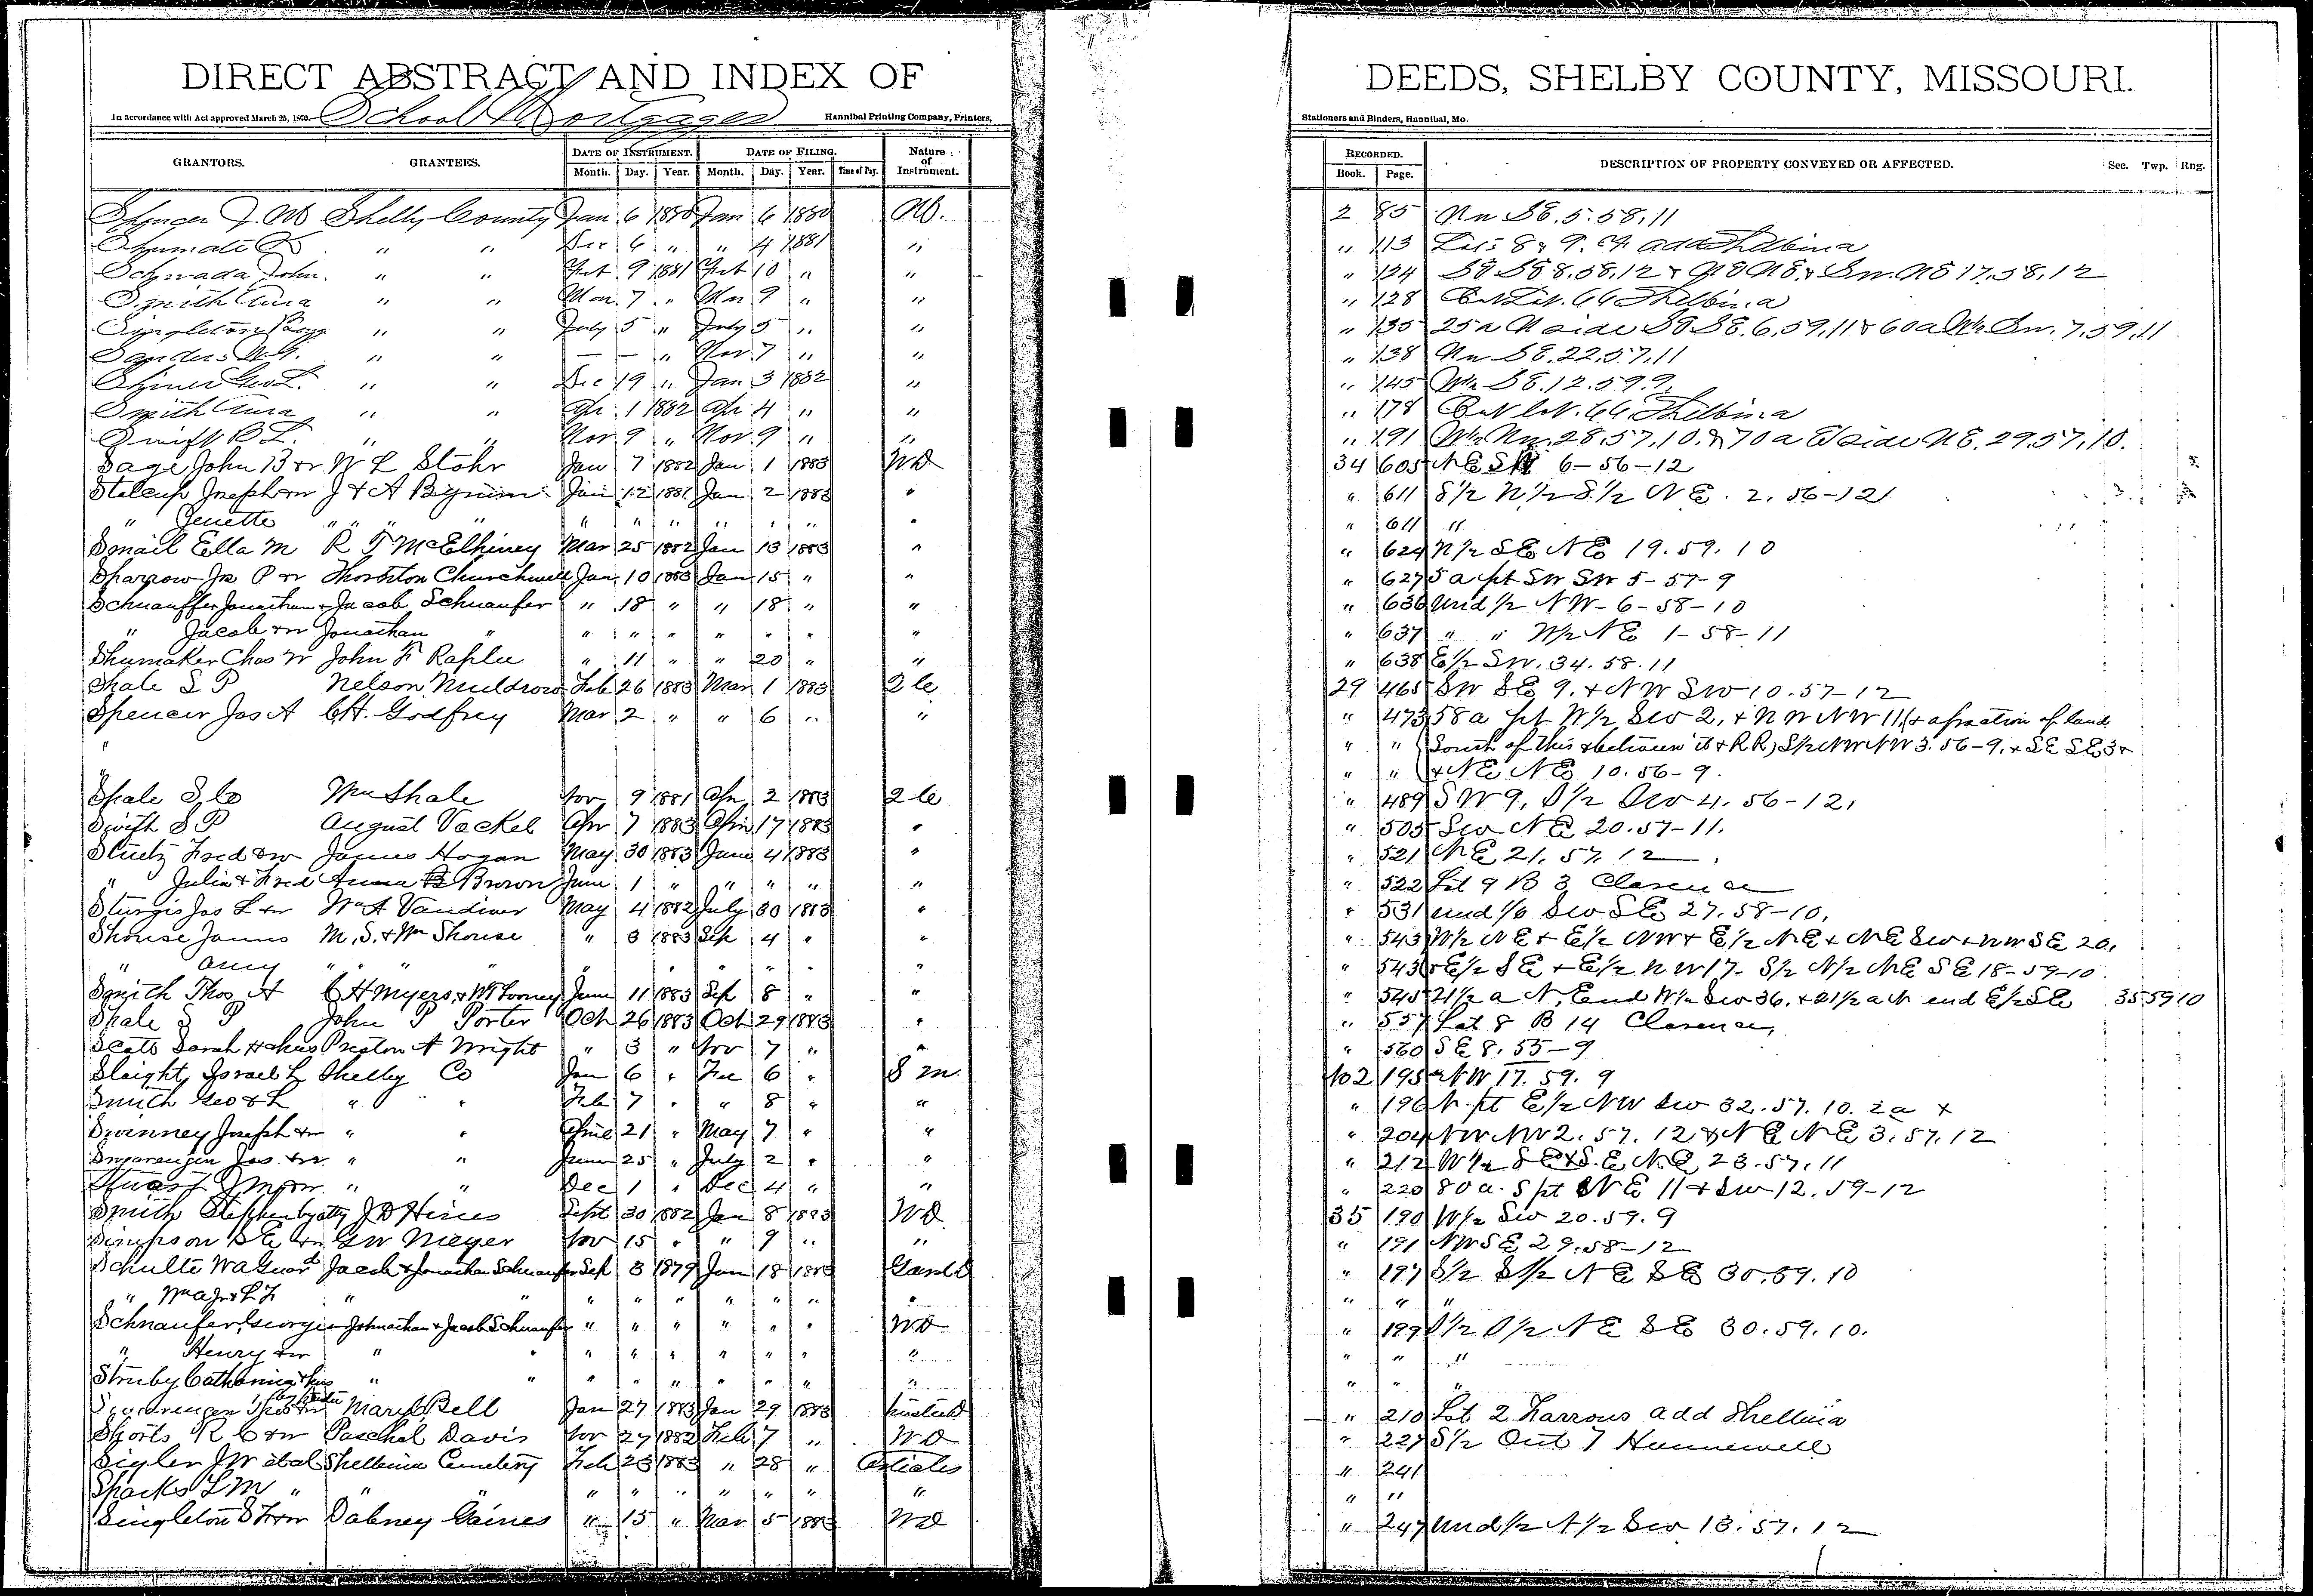 DIRECT ABSTRACT AND INDEX OF
School Mortgages
In accordance with Act approved March 25, 1870.
Hannibal Printing Company, Printers,
GRANTORS. GRANTEES. DATE OF INSTRUMENT. DATE OF FILING. Nature of Instrument.
Month. Day. Year. Month. Day. Year. Time of Day.
Spencer J. W Shelby County Jan 6 1880 Jan 6 1880
" " Dec 6 " " 4 1881 "
John " " Feb 9 1881 Feb 10 " "
Smith " " Mar 7 " Mar 9 " "
Singleton " " July 5 " July 5 " "
Sanders " " — — " Nov. 7 " "
Shiner Geo L. " " Dec 19 " Jan 3 1882 "
Smith " " Apr. 1 1882 Apr 4 " "
Swift B L. " " Nov. 9 " Nov. 9 " "
Sage John B + w W L Stohr Jan 7 1882 Jan 1 1883 WD
Stalcup Joseph + w J + A Bynum Jan 12 1881 Jan 2 1883 "
" Jenette " " " " " " " " " "
Smail Ella M R T McElhiney Mar 25 1882 Jan 13 1883 "
Sparrow Jn P + w Thornton Churchwell Jan 10 1883 Jan 15 " "
Schnauffer Jonathan + Jacob Schnaufer " 18 " " 18 " "
" Jacob + w Jonathan " " " " " " " "
Shumaker Chas W John F Raplee " 11 " " 20 " "
Shale S P Nelson Muldrow Feb 26 1883 Mar 1 1883 2 C
Spencer Jas A C H. Godfrey Mar 2 " " 6 " "
"
"
Shale S Wm Shale Nov 9 1881 Apr 2 1883 2 C
Swift S P August Vockel Apr 7 1883 Apr 17 1883 "
Stuetz Fred + w James Hogan May 30 1883 June 4 1883 "
" Julia + Fred Anna B Brown June 1 " " " " "
Sturgis Jas L + w Wm A Vandiver May 4 1882 July 30 1883 "
Shouse James M. S. + Wm Shouse " 3 1883 Sep 4 " "
" Amy " " " " " " " " " "
Smith Thos A C H Myers + W Looney June 11 1883 Sep 8 " "
Shale S P John P Porter Oct 26 1883 Oct 29 1883 "
Scott Sarah + hus Preston A Wright " 3 " Nov 7 " "
Slaight, Israel L Shelby Co Jan 6 " Feb 6 " S M
Smith Geo + L " " Feb 7 " " 8 " "
Swinney Joseph + w " " April 21 " May 7 " "
Swearengen Jas. + w " " June 25 " July 2 " "
" " Dec 1 " Dec 4 " "
Smith Stephen by atty J D Hines Sept 30 1882 Jan 8 1883 WD
Simpson S E + w G W Meyer Nov 15 " " 9 " "
Schulte W A Guard Jacob + Jonathan Schnaufer Sep 3 1879 Jan 18 1883
" Wm A Jr + L F " " " " " " " " "
Schnaufer, George Johnathan + Jacob Schnaufer " " " " " " WD
" Henry + w " " " " " " " " "
Struby Catharine + hus " " " " " " " " "
Swearengen Thos + w by trustee Mary Bell Jan 27 1883 Jan 29 1883 trusteeD
Shorts R C + w Paschal Davis Nov 27 1882 Feb 7 " WD
Sigler J W et al Shelbina Cemetery Feb 23 1883 " 28 " Articles
Sparks L M " " " " " " " " " "
Singleton S F + w Dabney Gaines " 15 " Mar 5 1883 WD
DEEDS, SHELBY COUNTY, MISSOURI.
Stationers and Binders, Hannibal, Mo.
RECORDED. DESCRIPTION OF PROPERTY CONVEYED OR AFFECTED. Sec. Twp. Rng.
Book. Page.
2 85 Nw SE. 5. 58, 11
" 113 Lots 8 & 9. add Shelbina
" 124 SE SE 8. 58, 12 + NE NE + Sw. NE 17. 58, 12
" 128 Out Lot. 66 Shelbina
" 135 25 a N side SE SE. 6, 59, 11 & 60 a W½ Sw. 7, 59, 11
" 138 Nw SE. 22, 57, 11
" 145 W½ SE. 12. 59 9.
" 178 Out lot. 66 Shelbina
" 191 W½ Nw. 28, 57, 10. & 70 a E side NE. 29, 57, 10.
34 605 NE SW 6-56-12
" 611 S½ N½ S½ NE. 2. 56-12
" 611 "
" 624 N½ SE NE 19. 59. 10
" 627 5 a pt SW SW 5-57-9
" 636 Und ½ NW-6-58-10
" 637 " " W½ NE 1-58-11
" 638 E½ SW. 34. 58. 11
29 465 SW SE 9. + NW SW 10. 57-12
" 473 58 a pt W½ SW 2, + NW NW 11 (+ a fraction of land
" " South of this & between it + RR) S½ NW NW 3. 56-9, + SE SE 3 +
" " + NE NE 10. 56-9.
" 489 SW 9, S½ SW 4. 56-12,
" 505 SW NE 20. 57-11.
" 521 NE 21. 57. 12
" 522 Lot 9 B 3 Clarence
" 531 und 1/6 SW SE 27. 58-10,
" 543 W½ NE + E½ NW + E½ NE + NE SW + NW SE 20,
" 543 + E½ SE + E½ NW 17- S½ N½ NE SE 18-59-10
" 545 21½ a N. End W½ SW 36. + 21½ a N end E½ SE 35 59 10
" 557 Lot 8 B 14 Clarence,
" 560 SE 8. 55-9
No 2 195 NW 17. 59. 9
" 196 N. pt E½ NW SW 32. 57. 10. 2a +
" 204 NW NW 2. 57. 12 & NE NE 3. 57. 12
" 212 W½ SE & S. E. NE 23. 57. 11
" 220 80 a. S pt NE 11 + SW 12. 59-12
35 190 W½ SW 20. 59. 9
" 191 NW SE 29. 58-12
" 197 S½ S½ NE SE 30. 59. 10
" " "
" 199 S½ S½ NE SE 30. 59. 10.
" " "
" " "
" 210 Lot 2 Farrows add Shelbina
" 227 S½ Out 7 Hunnewell
" 241
" "
" 247 Und ½ N½ SW 13. 57. 12